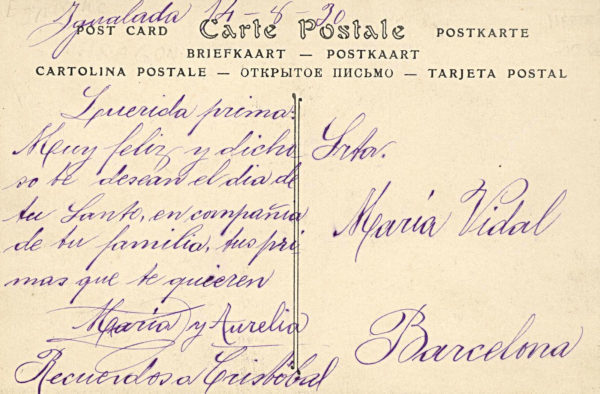 Igualada 14-8-30
Carte Postale
POST CARD
POSTKARTE
BRIEFKAART — POSTKAART
CARTOLINA POSTALE — ОТКРЫТОЕ ПИСЬМО — TARJETA POSTAL
Querida prima:
Muy feliz y dicho
so te desean el dia de
tu Santo, en compañia
de tu familia, tus pri
mas que te quieren
María y Aurelia
Recuerdos a Cristobal
Srta.
María Vidal
Barcelona